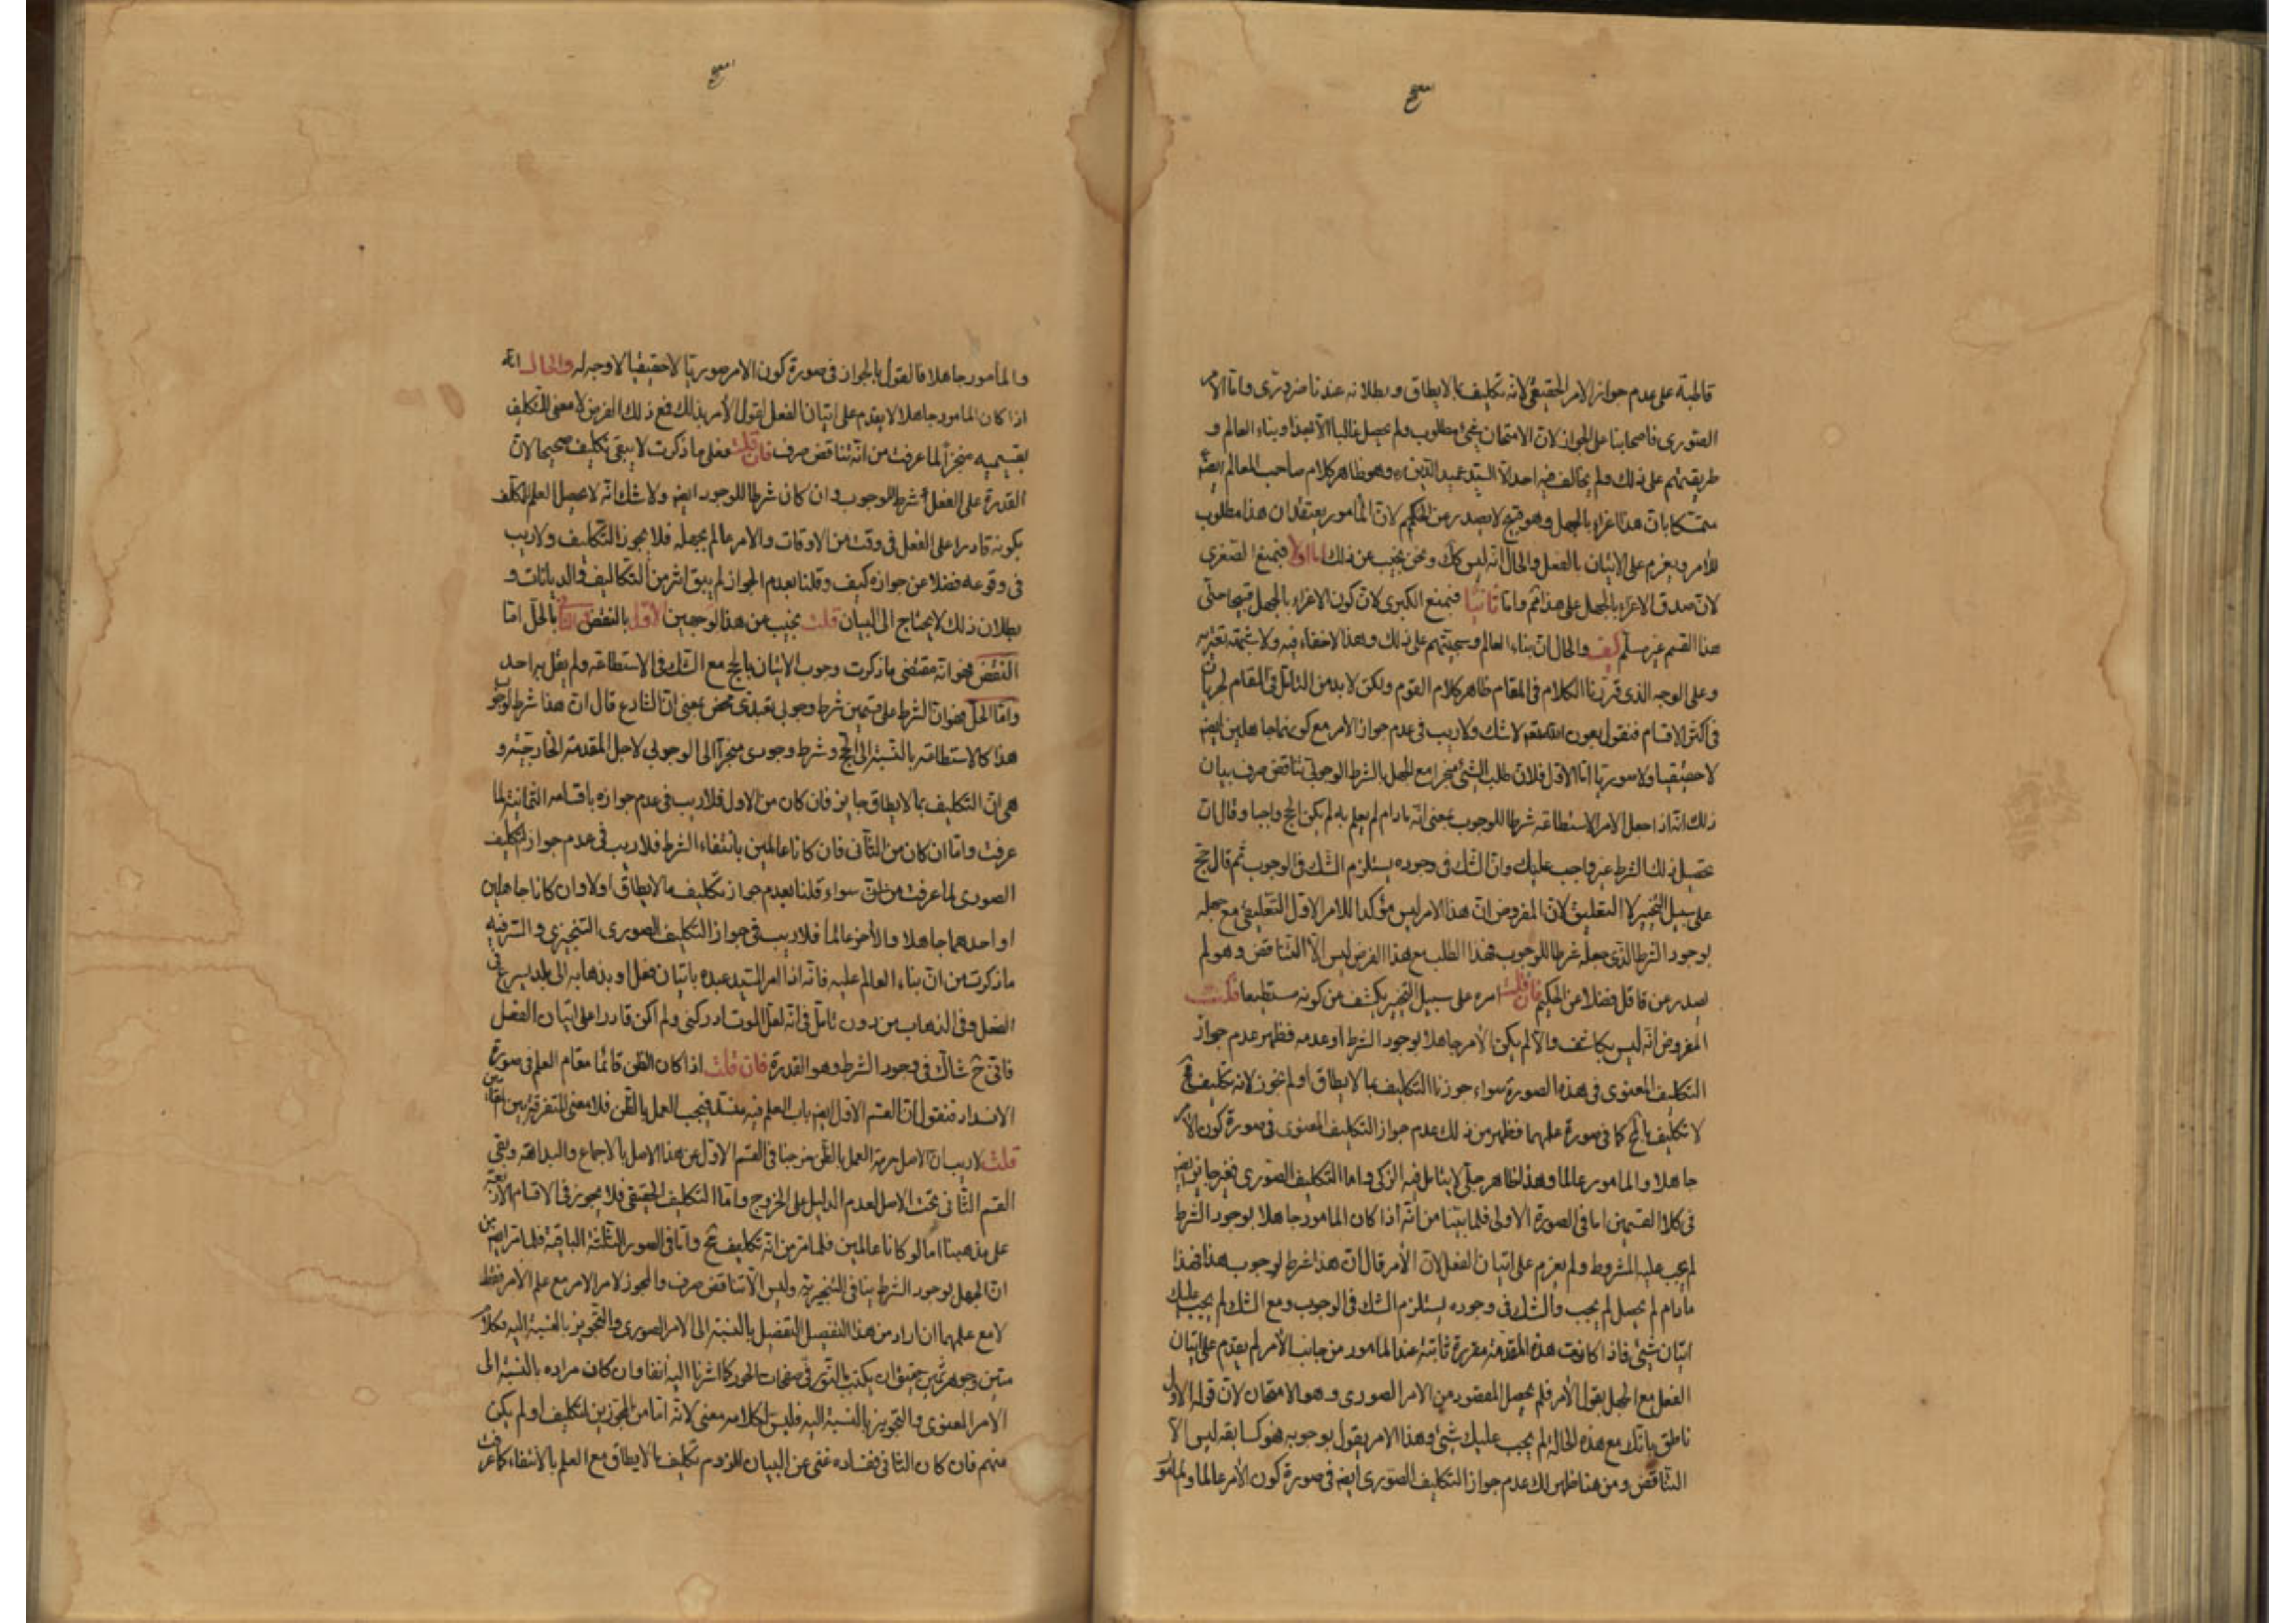 قاطبة على عدم جواز الامر الحقيقى لانه تكليف بما لايطاق وبطلانه عندنا ضرورى واما الامر
الصورى فاصحابنا على الجواز لان الامتحان شئ مطلوب ولم يحصل غالبا الا بهذا وبناء العالم و
طريقتهم على ذلك ولم يخالف فيه احد الا السيد عميد الدين ره وهو ظاهر كلام صاحب المعالم ايضا
متمسكا بان هذا اغراء بالجهل وهو قبيح لا يصدر من الحكيم لان المأمور يعتقد ان هذا مطلوب
للأمر ويعزم على الاتيان بالفعل والحال انه ليس كك ونحن نجيب عن ذلك اما اولا فنمنع الصغرى
لان صدق الاغراء بالجهل على هذا ثم واما ثانيا فنمنع الكبرى لان كون الاغراء بالجهل قبيحا حتى
هذا القسم غير مسلم كيف والحال ان بناء العالم وسجيتهم على ذلك وهذا لاخفاء فيه ولا شبهة تعتريه
وعلى الوجه الذى قررنا الكلام فى المقام ظاهر كلام القوم ولكن لابد من التامل فى المقام لجريان
فى اكثر الاقسام فنقول بعون الله تعه لاشك ولاريب فى عدم جواز الامر مع كونهما جاهلين ايضه
لاحقيقيا ولا صوريا اما الاول فلان طلب الشئ منجزا مع الجهل بالشرط الوجوبى تناقض صرف بيان
ذلك انه اذا جعل الامر الاستطاعة شرطا للوجوب بمعنى انه مادام لم يعلم به لم يكن الحج واجبا وقال ان
تحصيل ذلك الشرط غير واجب عليك وان الشك فى وجوده يستلزم الشك فى الوجوب ثم قال حج
على سبيل التنجيز لا التعليق لان المفروض ان هذا الامر ليس مؤكدا للامر الاول التعليقى مع جهله
بوجود الشرط الذى جعله شرطا للوجوب فهذا الطلب مع هذا الفرض ليس الا التناقض وهو لم
يصدر من عاقل فضلا عن الحكيم فان قلت امره على سبيل التنجيز يكشف عن كونه مستطيعا قلت
المفروض انه ليس بكاشف والا لم يكن الأمر جاهلا بوجود الشرط او عدمه فظهر عدم جواز
التكليف المعنوى فى هذه الصورة سواء جوزنا التكليف بما لايطاق او لم نجوز لانه تكليف مح
لا تكليف بالمح كما فى صورة علمهما فظهر من ذلك عدم جواز التكليف المعنوى فى صورة كون الأمر
جاهلا والمامور عالما وهذا ظاهر جلى لا يتامل فيه الزكى واما التكليف الصورى فغير جايز ايضه
فى كلا القسمين اما فى الصورة الاولى فلما بينا من انه اذا كان المامور جاهلا بوجود الشرط
لم يجب عليه المشروط ولم يعزم على اتيان الفعل لان الأمر قال ان هذا شرط لوجوب هذا فهذا
مادام لم يحصل لم يجب والشك فى وجوده يستلزم الشك فى الوجوب ومع الشك لم يجب عليك
اتيان شئ فاذا كانت هذه المقدمة مقررة ثابتة عند المامور من جانب الأمر لم يقدم على اتيان
الفعل مع الجهل بقول الأمر فلم يحصل المقصود من الامر الصورى وهو الامتحان لان قوله الاول
ناطق بانك مع هذه الحالة لم يجب عليك شئ وهذا الامر يقول بوجوبه فهو كسابقه ليس الا
التناقض ومن هنا ظهر لك عدم جواز التكليف الصورى ايضه فى صورة كون الأمر عالما والمأمور
والمأمور جاهلا فالقول بالجواز فى صورة كون الامر صوريا لاحقيقيا لاوجه له والحال انه
اذا كان المامور جاهلا لا يقدم على اتيان الفعل لقول الأمر بذلك فمع ذلك الفرض لا معنى للتكليف
بقسميه منجزا لما عرفت من انه تناقض صرف فان قلت فعلى ما ذكرت لا يبقى تكليف صحيحا لان
القدرة على الفعل شرط للوجوب وان كان شرطا للوجود ايضه ولا شك انه لا يحصل العلم للمكلف
بكونه قادرا على الفعل فى وقت من الاوقات والامر عالم بجهله فلا يجوز التكليف ولاريب
فى وقوعه فضلا عن جوازه كيف وقلنا بعدم الجواز لم يبق اثر من التكاليف والديانات و
بطلان ذلك لا يحتاج الى البيان قلت نجيب عن هذا لوجهين الاول بالنقض والثانى بالحل اما
النقض فهو انه مقتضى ما ذكرت وجوب الاتيان بالحج مع الشك فى الاستطاعة ولم يقل به احد
واما الحل فهو ان الشرط على قسمين شرط وجوبى تعبدى محض بمعنى ان الشارع قال ان هذا شرط لوجوب
هذا كالاستطاعة بالنسبة الى الحج وشرط وجودى منجرا الى الوجوبى لاجل المقدمة الخارجية و
هى ان التكليف بما لايطاق جايز فان كان من الاول فلاريب فى عدم جوازه باقسامه الثمانية لما
عرفت واما ان كان من الثانى فان كانا عالمين بانتفاء الشرط فلاريب فى عدم جواز التكليف
الصورى لما عرفت من ان سواء قلنا بعدم جواز تكليف مالايطاق اولا وان كانا جاهلين
او احدهما جاهلا والأخر عالما فلاريب فى جواز التكليف الصورى التنجيزى والسر فيه
ما ذكرت من ان بناء العالم عليه فانه اذا امر السيد عبده باتيان فعل او بذهابه الى بلد يسرع فى
الفعل وفى الذهاب من دون تامل فى انه لعل الموت ادركنى ولم اكن قادرا على اتيان الفعل
فانى ح شاك فى وجود الشرط وهو القدرة فان قلت اذا كان الظن قائما مقام العلم فى صورة
الانسداد فنقول ان القسم الاول ايضه باب العلم فيه منسد فيجب العمل بالظن فلا معنى للتفرقة بين المقامين
قلت لاريب ان الاصل حرمة العمل بالظن خرجنا فى القسم الاول عن هذا الاصل بالاجماع والبداهة وبقى
القسم الثانى تحت الاصل لعدم الدليل على الخروج واما التكليف الحقيقى فلا يجوز فى الاقسام الاربعة
على مذهبنا اما لو كانا عالمين فلما مر من انه تكليف مح واما فى الصور الثلثة الباقية فلما مر ايضه من
ان الجهل بوجود الشرط ينافى التنجيزية وليس الا تناقض صرف والمجوز لامر الامر مع علم الأمر فقط
لا مع علمهما ان اراد من هذا التفصيل التفصيل بالنسبة الى الامر الصورى والتجويز بالنسبة اليه فكلام
متين وجوهر ثمين حقيق ان يكتب بالنور فى صفحات الحور كما اشرنا اليه انفا وان كان مراده بالنسبة الى
الامر المعنوى والتجويز بالنسبة اليه فليس لكلامه معنى لانه اما من المجوزين لتكليف او لم يكن
منهم فان كان الثانى ففساده غنى عن البيان للزوم تكليف مالايطاق مع العلم بالانتفاء كما عرفت